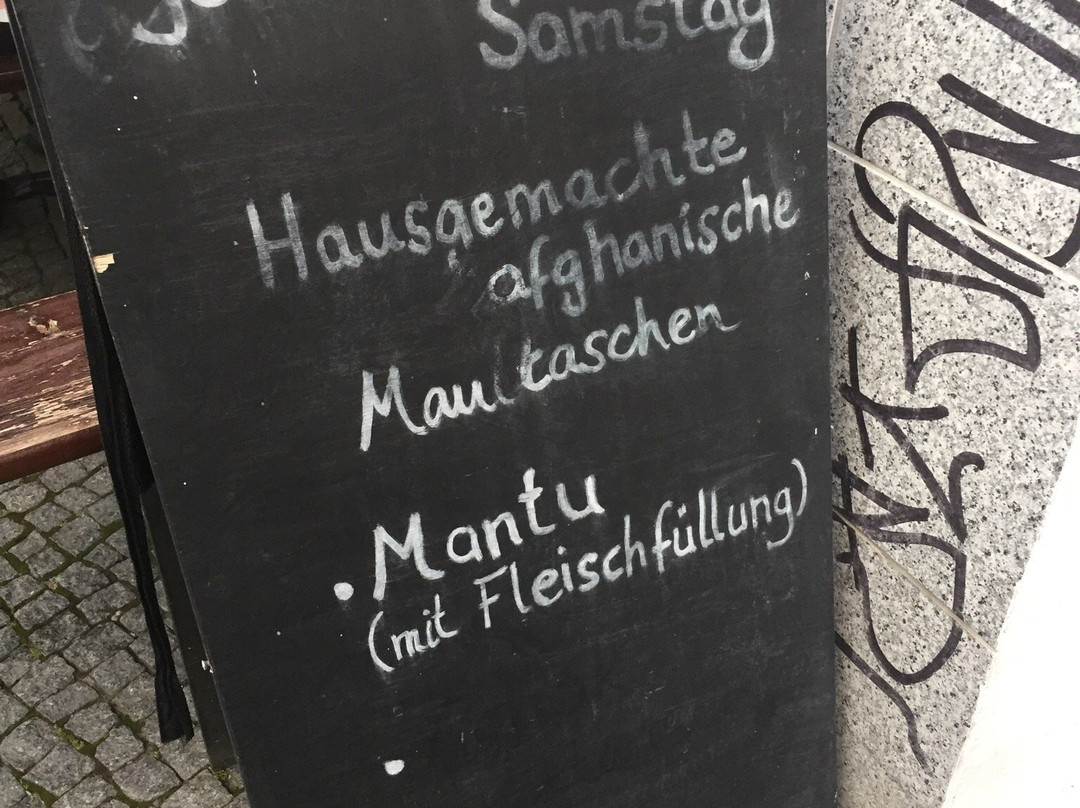 Samstag
Hausgemachte
afghanische
Maultaschen
• Mantu
(mit Fleischfüllung)
•